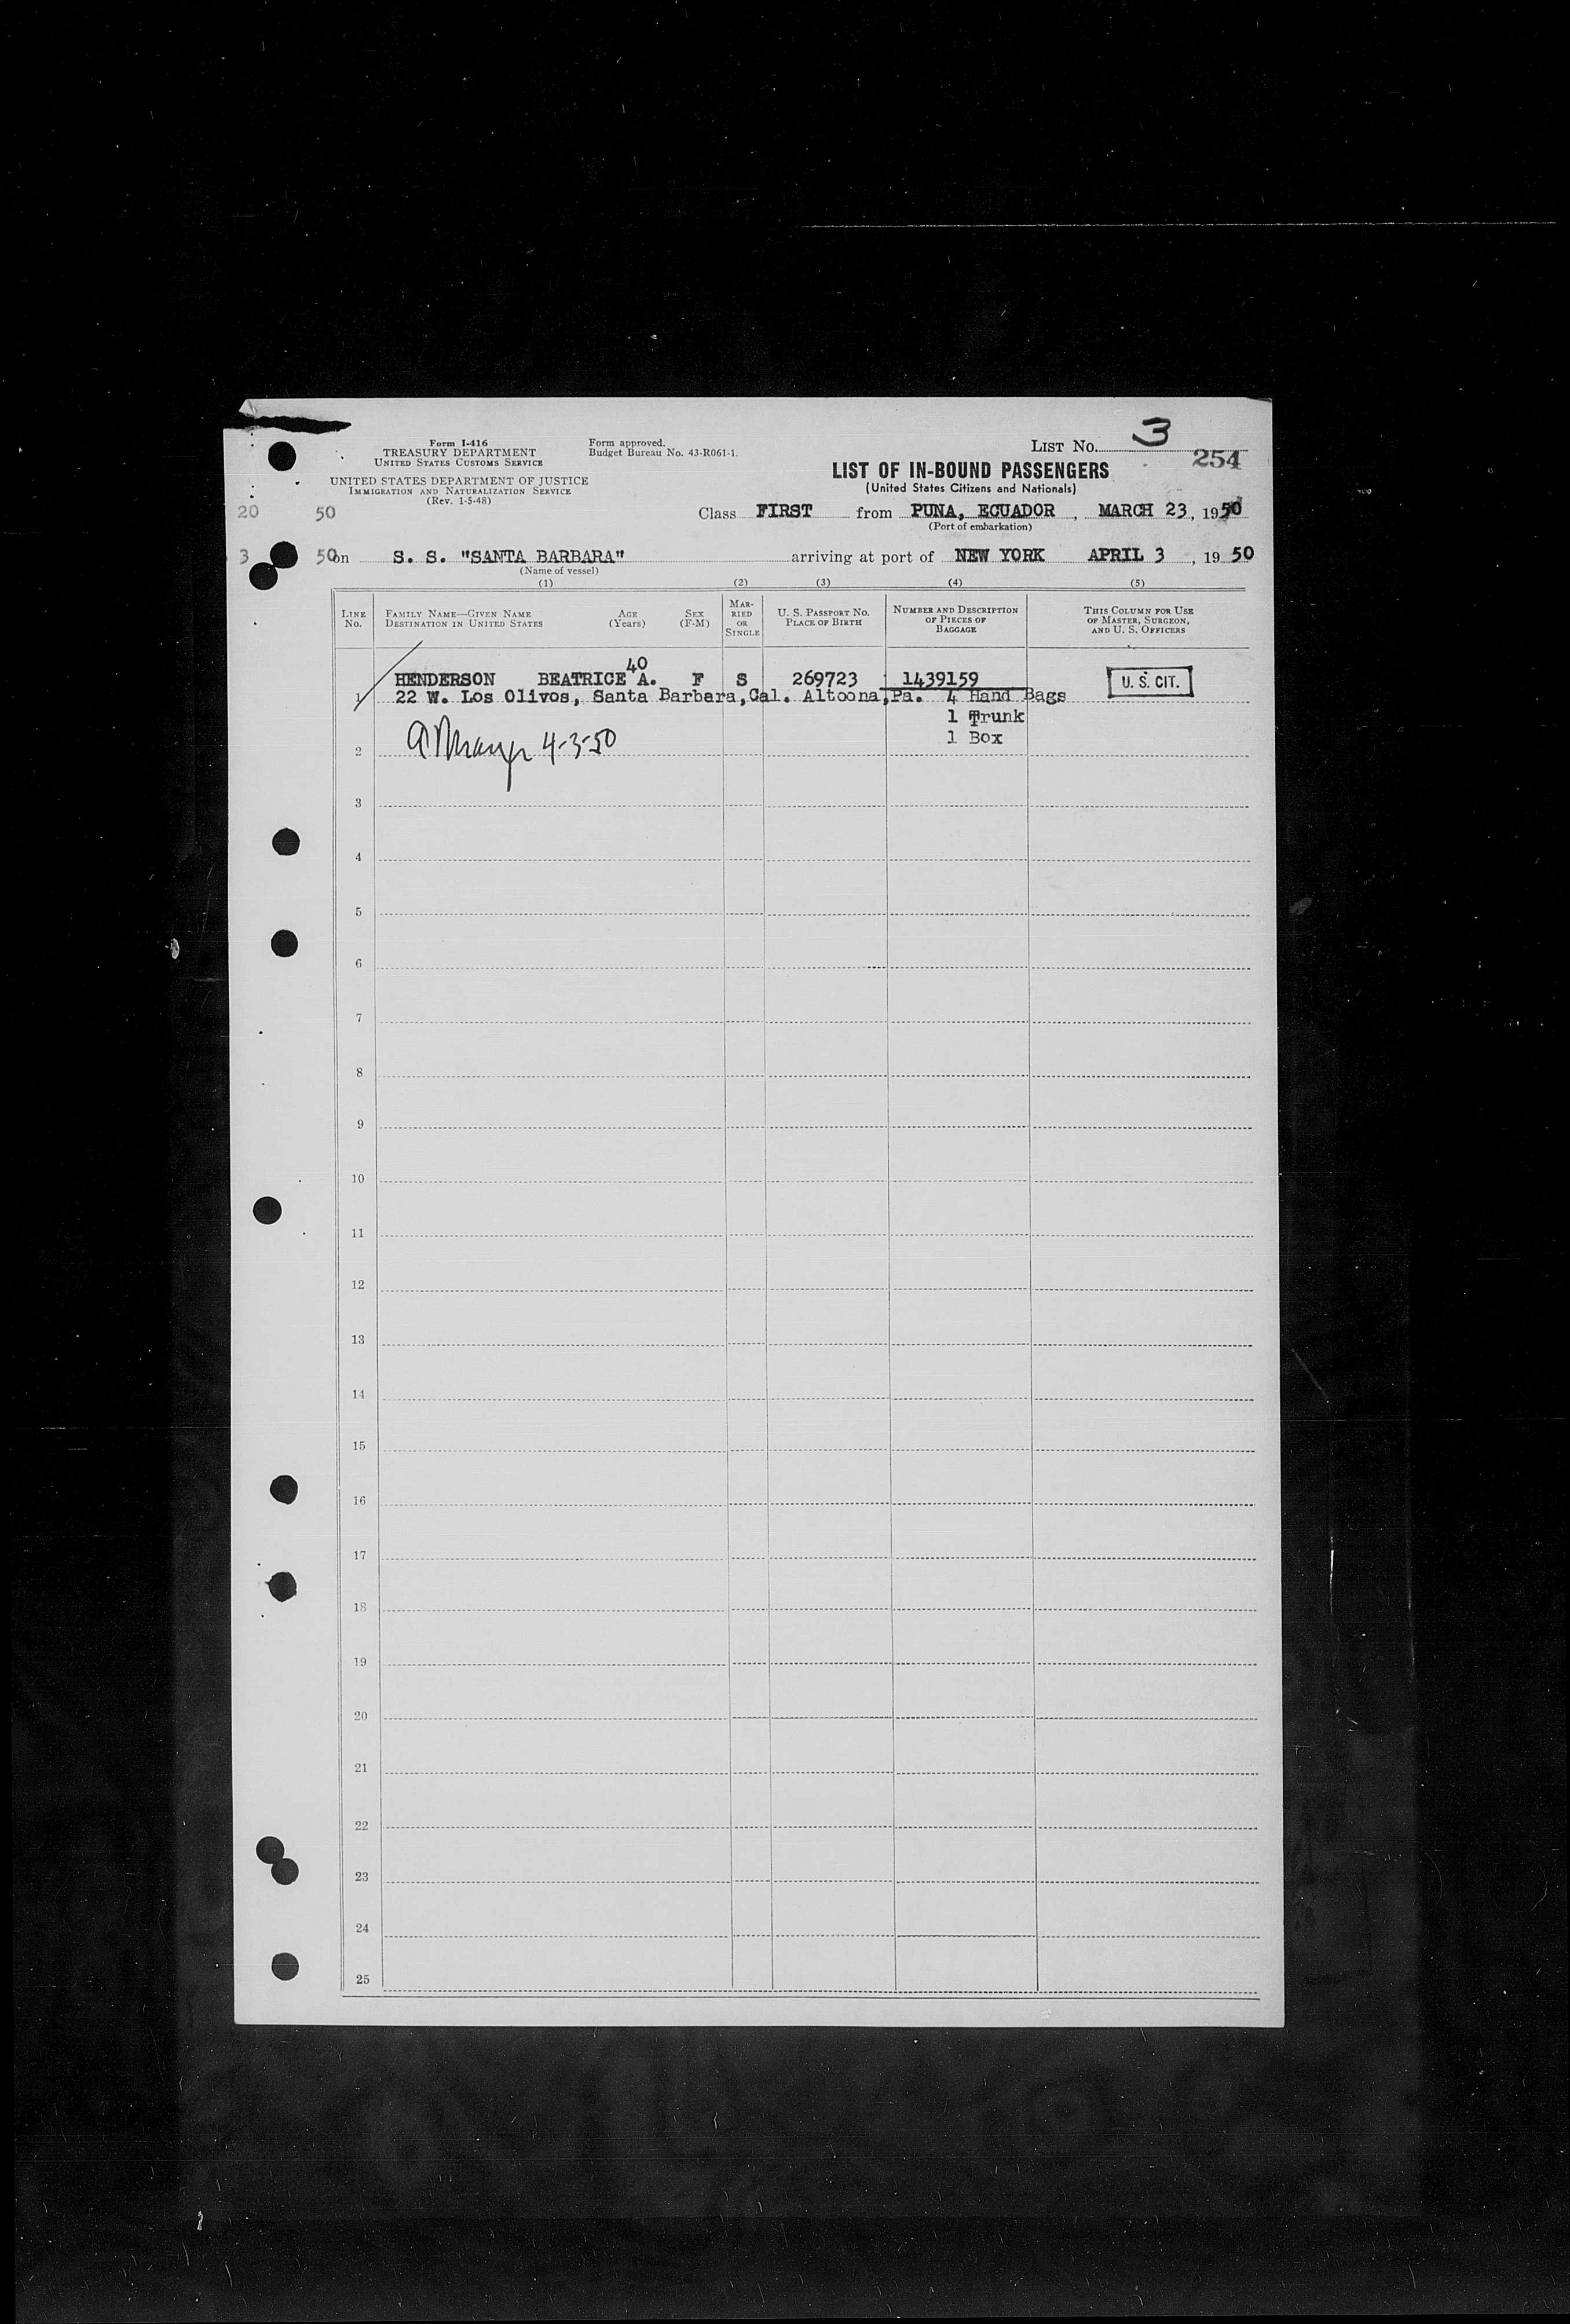 Form I-416
TREASURY DEPARTMENT
UNITED STATES CUSTOMS SERVICE
UNITED STATES DEPARTMENT OF JUSTICE
IMMIGRATION AND NATURALIZATION SERVICE
(Rev. 1-5-48)
Form approved.
Budget Bureau No. 43-R061-1.
LIST NO. 3
254
LIST OF IN-BOUND PASSENGERS
(United States Citizens and Nationals)
20 50
Class FIRST from PUNA, ECUADOR, MARCH 23, 1950
(Port of embarkation)
3 50
on S. S. "SANTA BARBARA" arriving at port of NEW YORK APRIL 3, 1950
(Name of vessel)
(1) (2) (3) (4) (5)
LINE NO.
FAMILY NAME—GIVEN NAME AGE SEX
DESTINATION IN UNITED STATES (Years) (F-M)
MARRIED OR SINGLE
U. S. PASSPORT NO.
PLACE OF BIRTH
NUMBER AND DESCRIPTION OF PIECES OF BAGGAGE
THIS COLUMN FOR USE OF MASTER, SURGEON, AND U. S. OFFICERS
40
HENDERSON BEATRICE A. F S 269723 1439159 U. S. CIT.
1 22 W. Los Olivos, Santa Barbara, Cal. Altoona, Pa. 4 Hand Bags
1 Trunk
1 Box
4-3-50
2
3
4
5
6
7
8
9
10
11
12
13
14
15
16
17
18
19
20
21
22
23
24
25